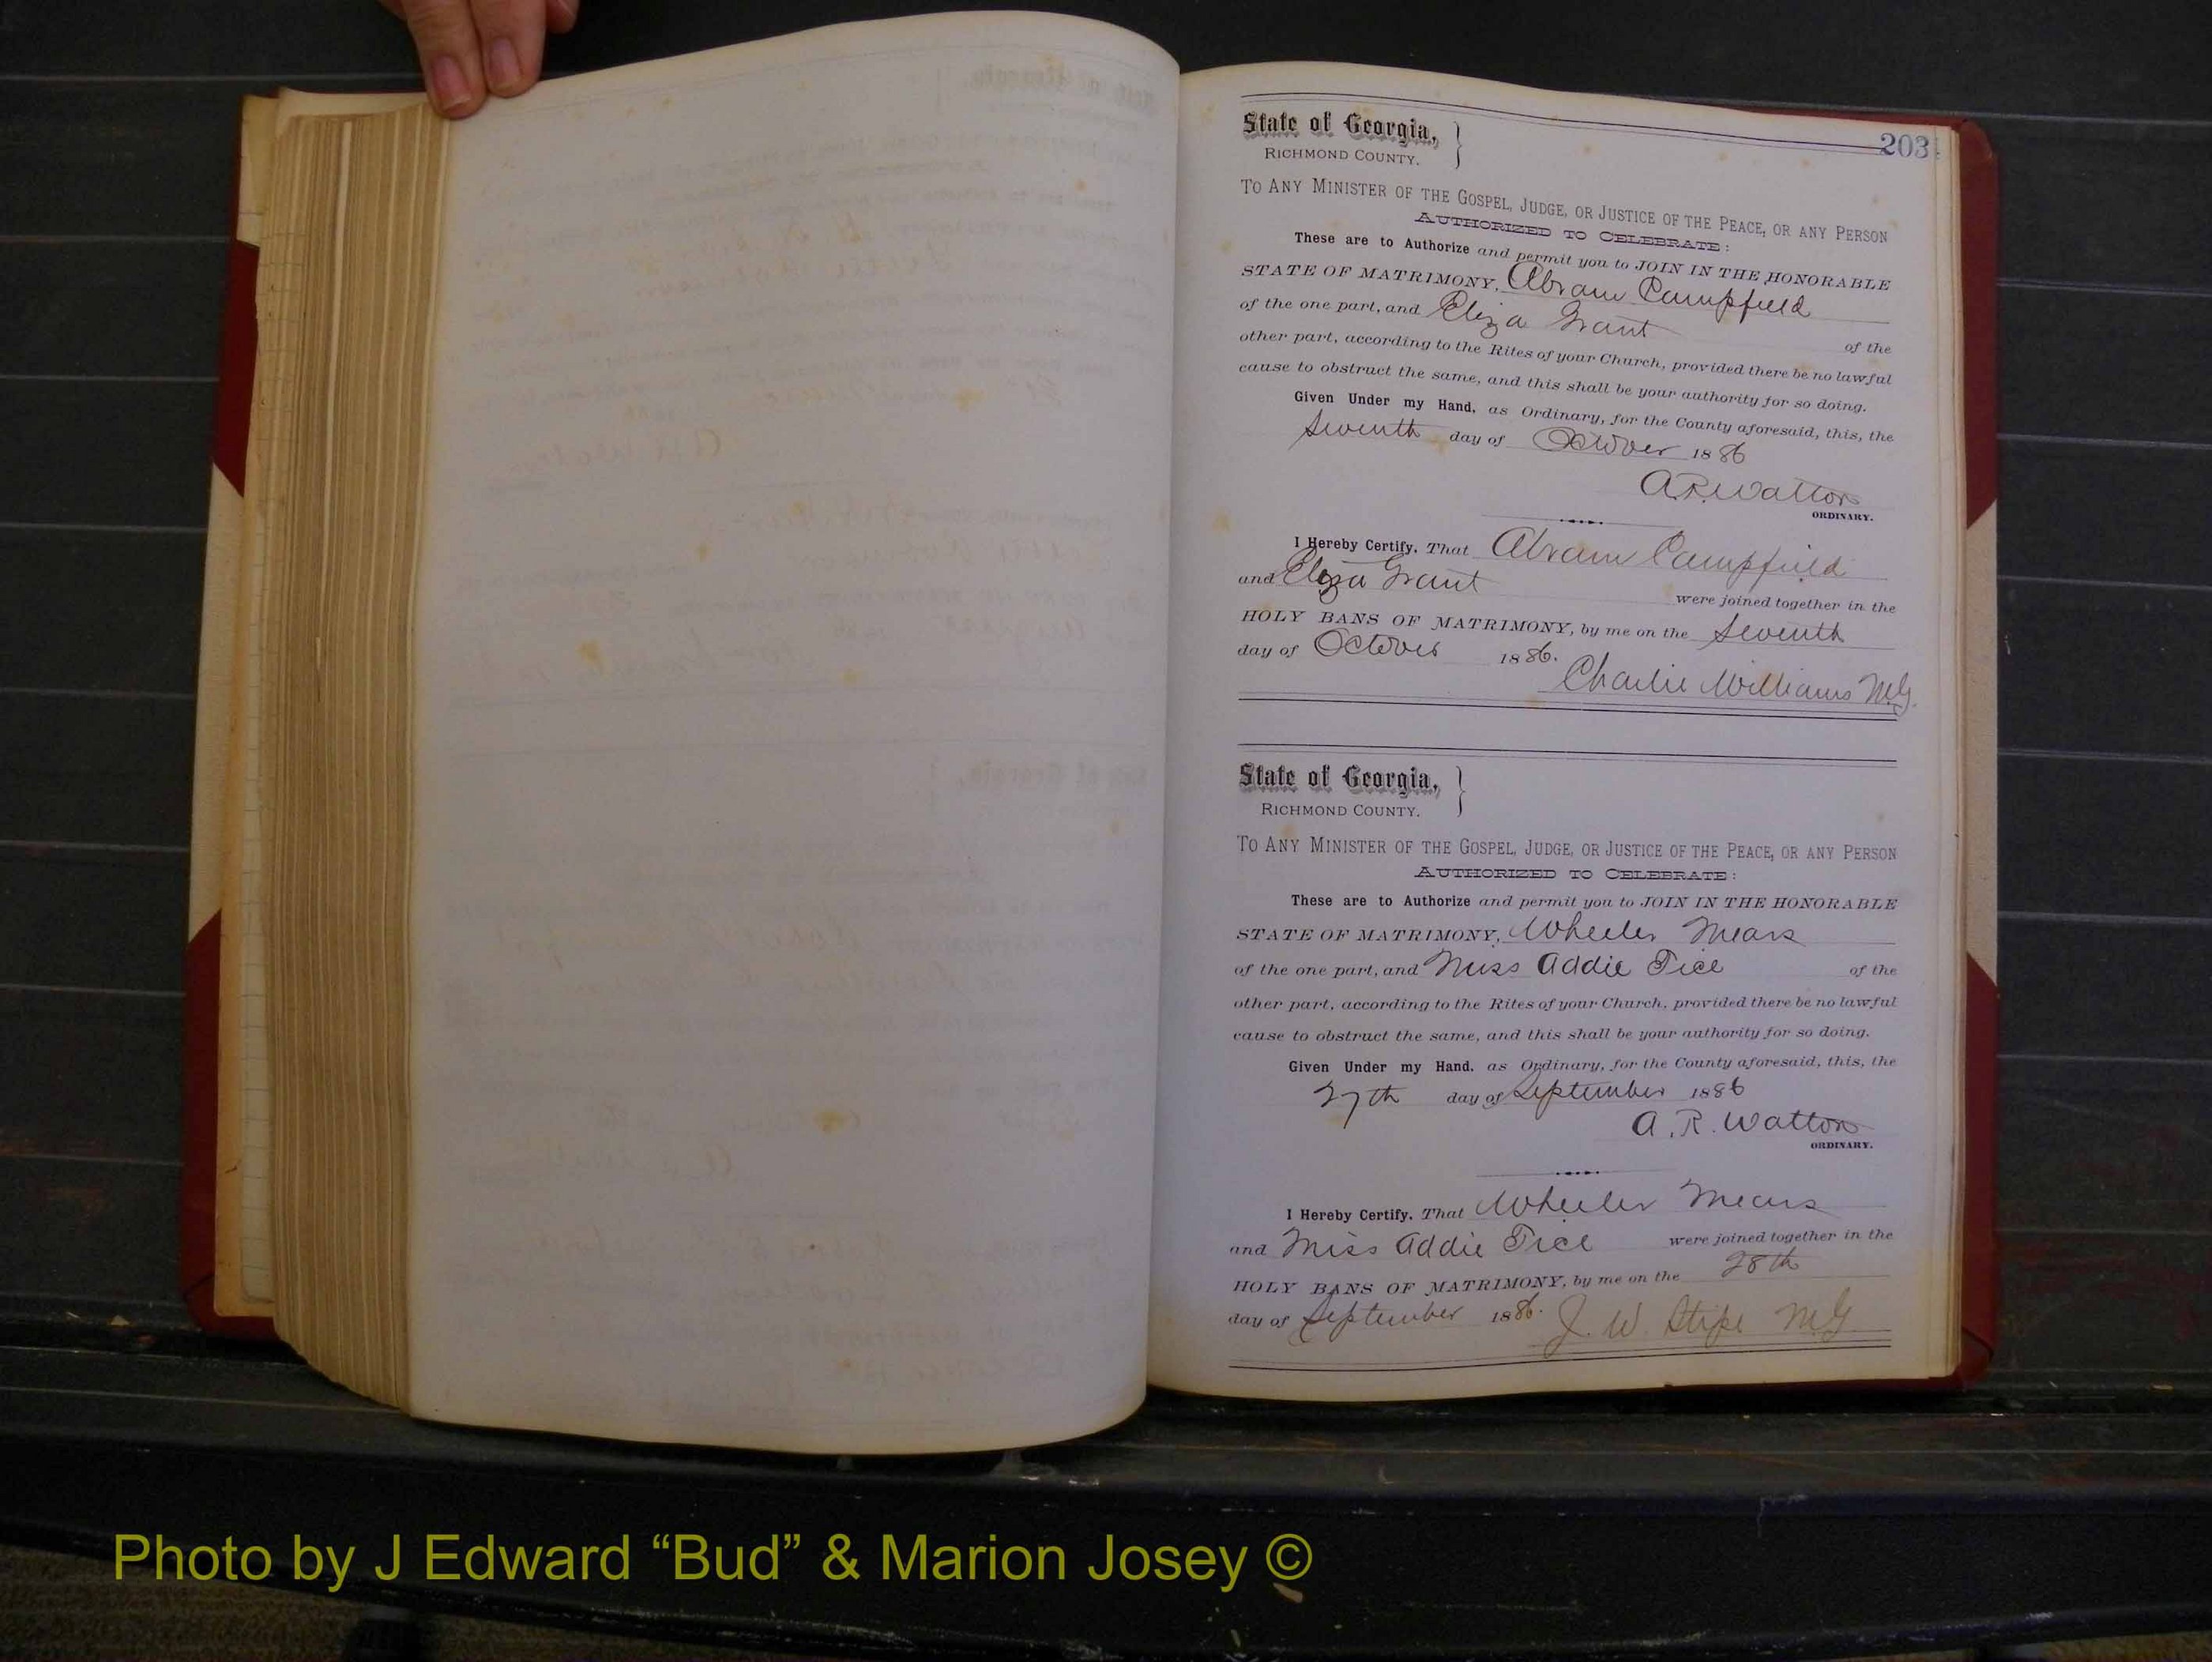 203
State of Georgia,
RICHMOND COUNTY.
TO ANY MINISTER OF THE GOSPEL, JUDGE, OR JUSTICE OF THE PEACE, OR ANY PERSON
AUTHORIZED TO CELEBRATE:
These are to Authorize and permit you to JOIN IN THE HONORABLE
STATE OF MATRIMONY, Abram Campfield
of the one part, and Eliza Grant of the
other part, according to the Rites of your Church, provided there be no lawful
cause to obstruct the same, and this shall be your authority for so doing.
Given Under my Hand, as Ordinary, for the County aforesaid, this, the
Seventh day of October 1886
A.R. Walton
ORDINARY.
I Hereby Certify, That Abram Campfield
and Eliza Grant were joined together in the
HOLY BANS OF MATRIMONY, by me on the Seventh
day of October 1886.
Charlie Williams M.G.
State of Georgia,
RICHMOND COUNTY.
TO ANY MINISTER OF THE GOSPEL, JUDGE, OR JUSTICE OF THE PEACE, OR ANY PERSON
AUTHORIZED TO CELEBRATE:
These are to Authorize and permit you to JOIN IN THE HONORABLE
STATE OF MATRIMONY, Wheeler Mears
of the one part, and Miss Addie Tice of the
other part, according to the Rites of your Church, provided there be no lawful
cause to obstruct the same, and this shall be your authority for so doing.
Given Under my Hand, as Ordinary, for the County aforesaid, this, the
27th day of September 1886
A. R. Walton
ORDINARY.
I Hereby Certify, That Wheeler Mears
and Miss Addie Tice were joined together in the
HOLY BANS OF MATRIMONY, by me on the 28th
day of September 1886. J. W. Stipe M.G
Photo by J Edward “Bud” & Marion Josey ©